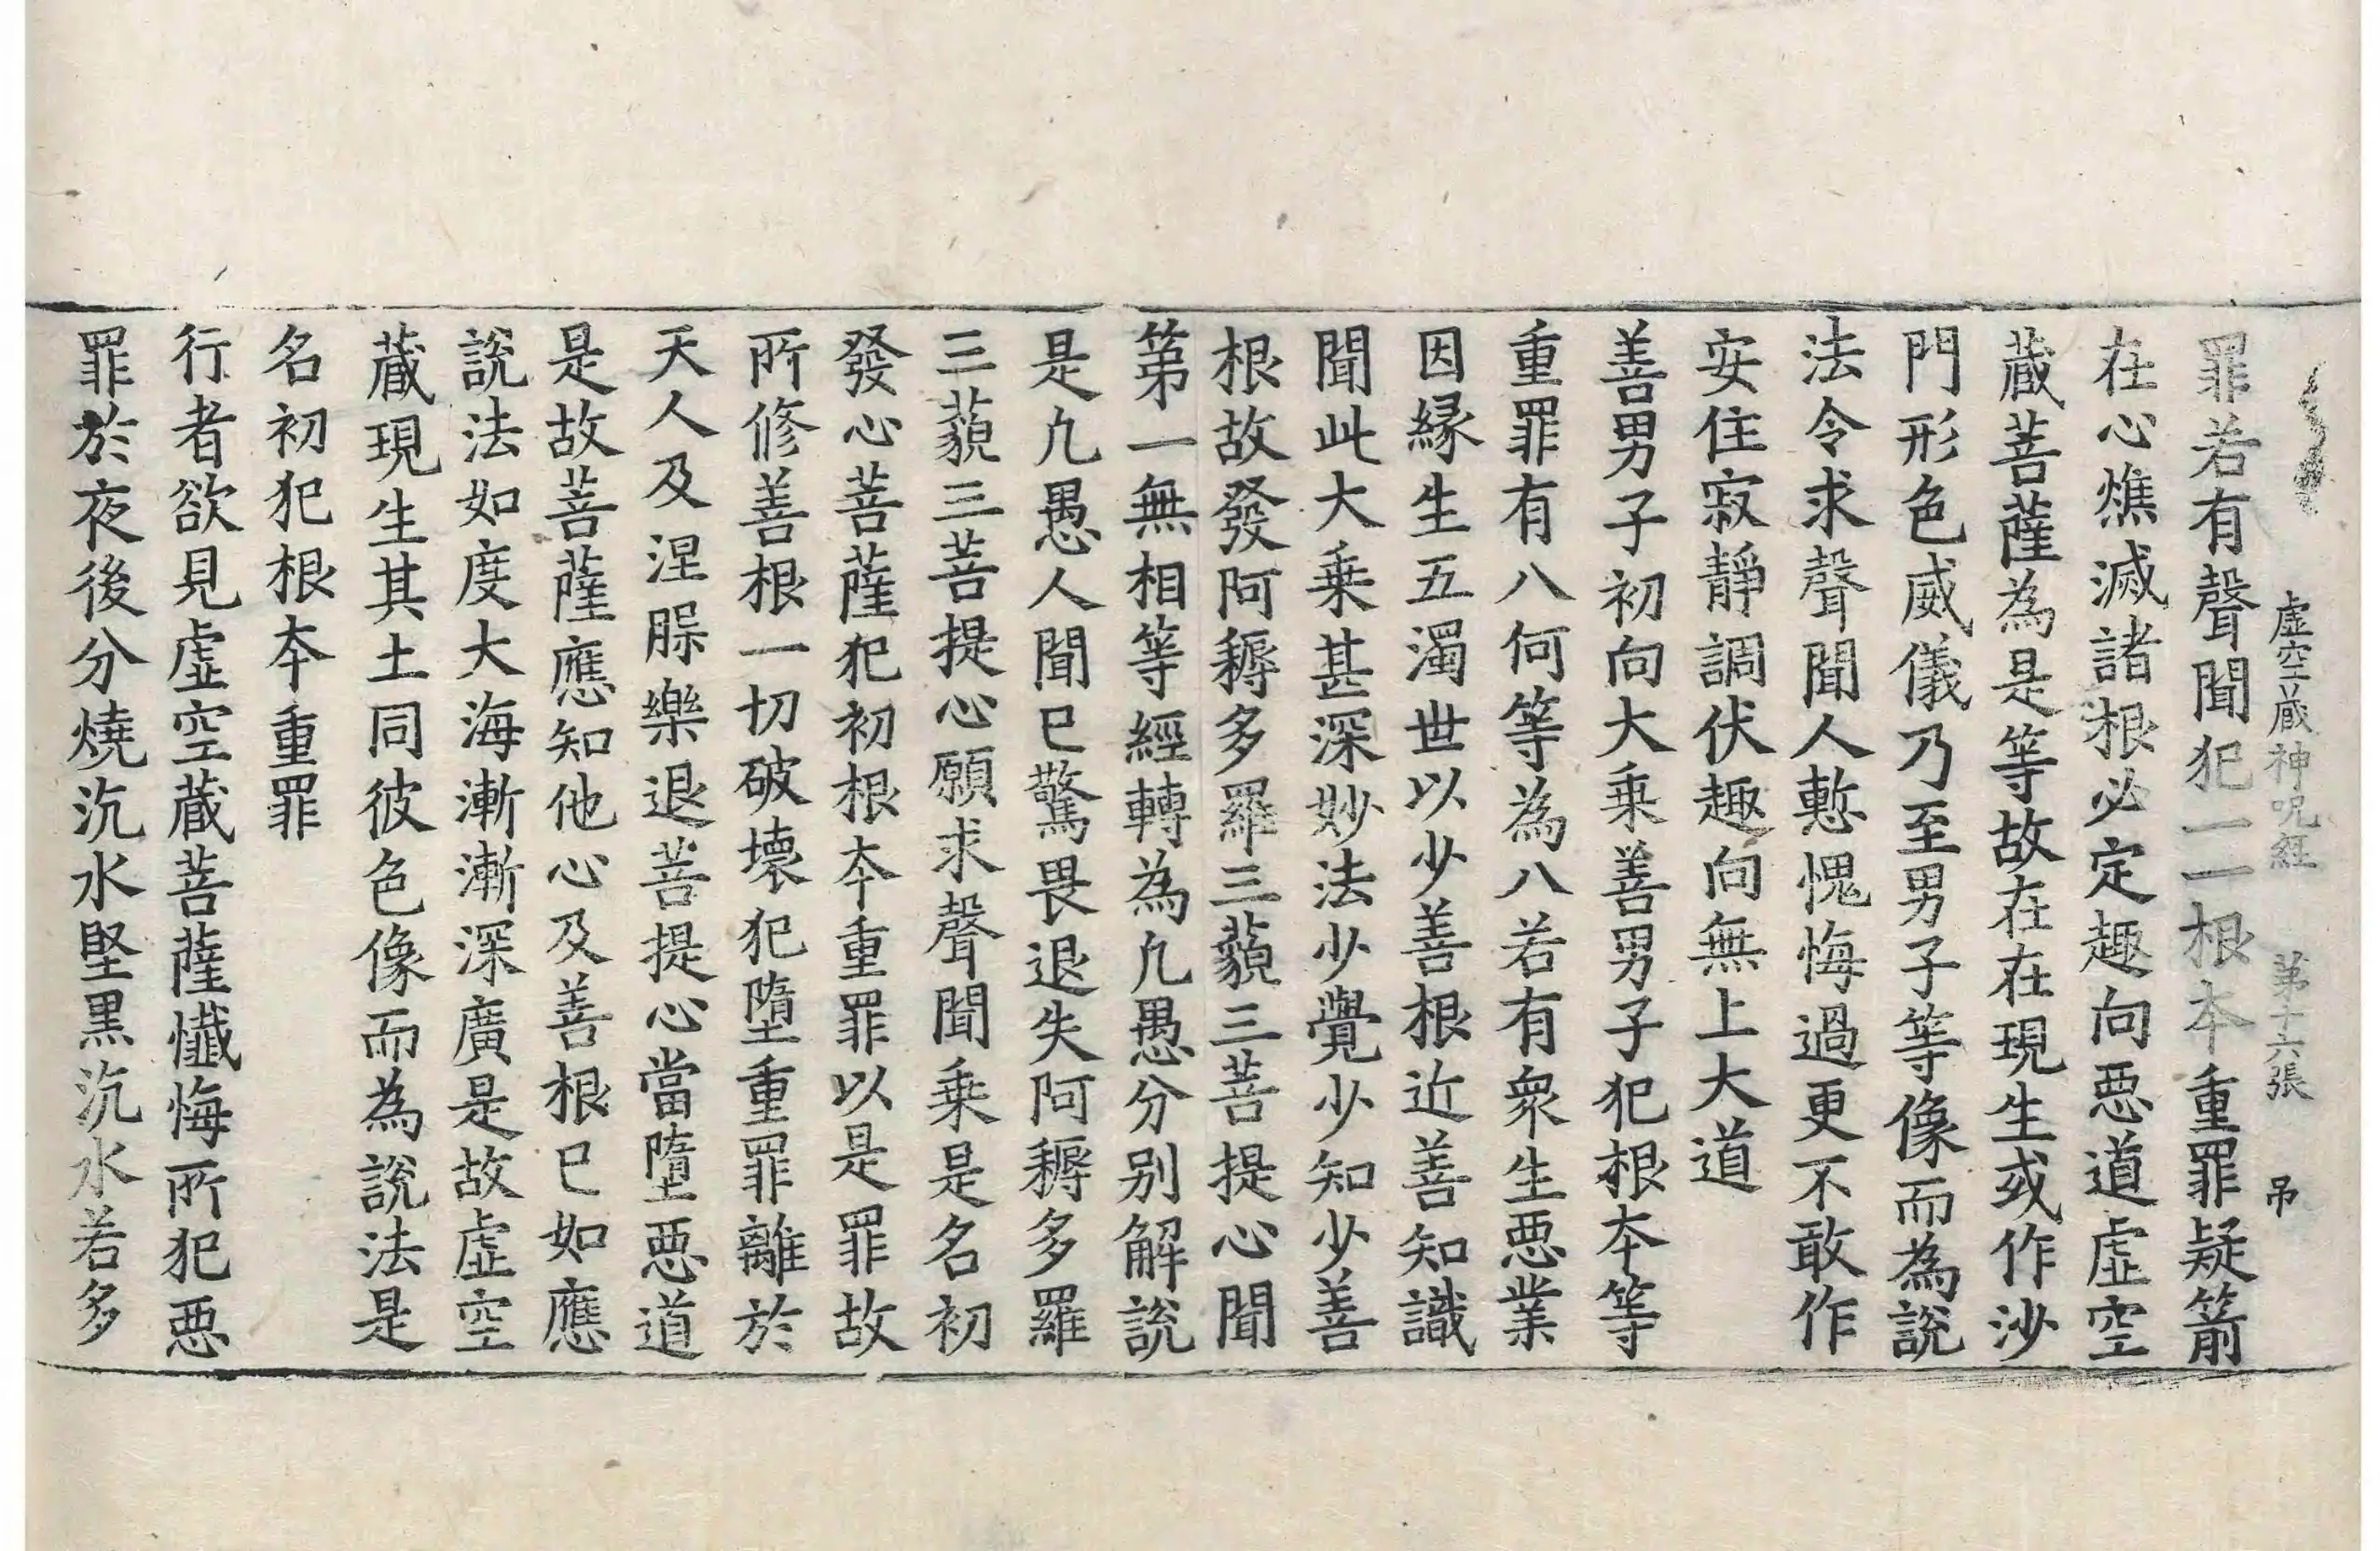 虛空藏神呪經 第十六張 吊
罪若有聲聞犯一一根本重罪疑箭
在心燋滅諸根必定趣向惡道虛空
藏菩薩為是等故在在現生或作沙
門形色威儀乃至男子等像而為說
法令求聲聞人慙愧悔過更不敢作
安住寂靜調伏趣向無上大道
善男子初向大乗善男子犯根本等
重罪有八何等為八若有衆生惡業
因緣生五濁世以少善根近善知識
聞此大乗甚深妙法少覺少知少善
根故發阿耨多羅三藐三菩提心聞
第一無相等經轉為凡愚分别解說
是凡愚人聞已驚畏退失阿耨多羅
三藐三菩提心願求聲聞乗是名初
發心菩薩犯初根本重罪以是罪故
所修善根一切破壞犯墮重罪離於
天人及涅槃樂退菩提心當墮惡道
是故菩薩應知他心及善根已如應
說法如度大海漸漸深廣是故虛空
藏現生其土同彼色像而為說法是
名初犯根本重罪
行者欲見虛空藏菩薩懺悔所犯惡
罪於夜後分燒沉水堅黑沉水若多